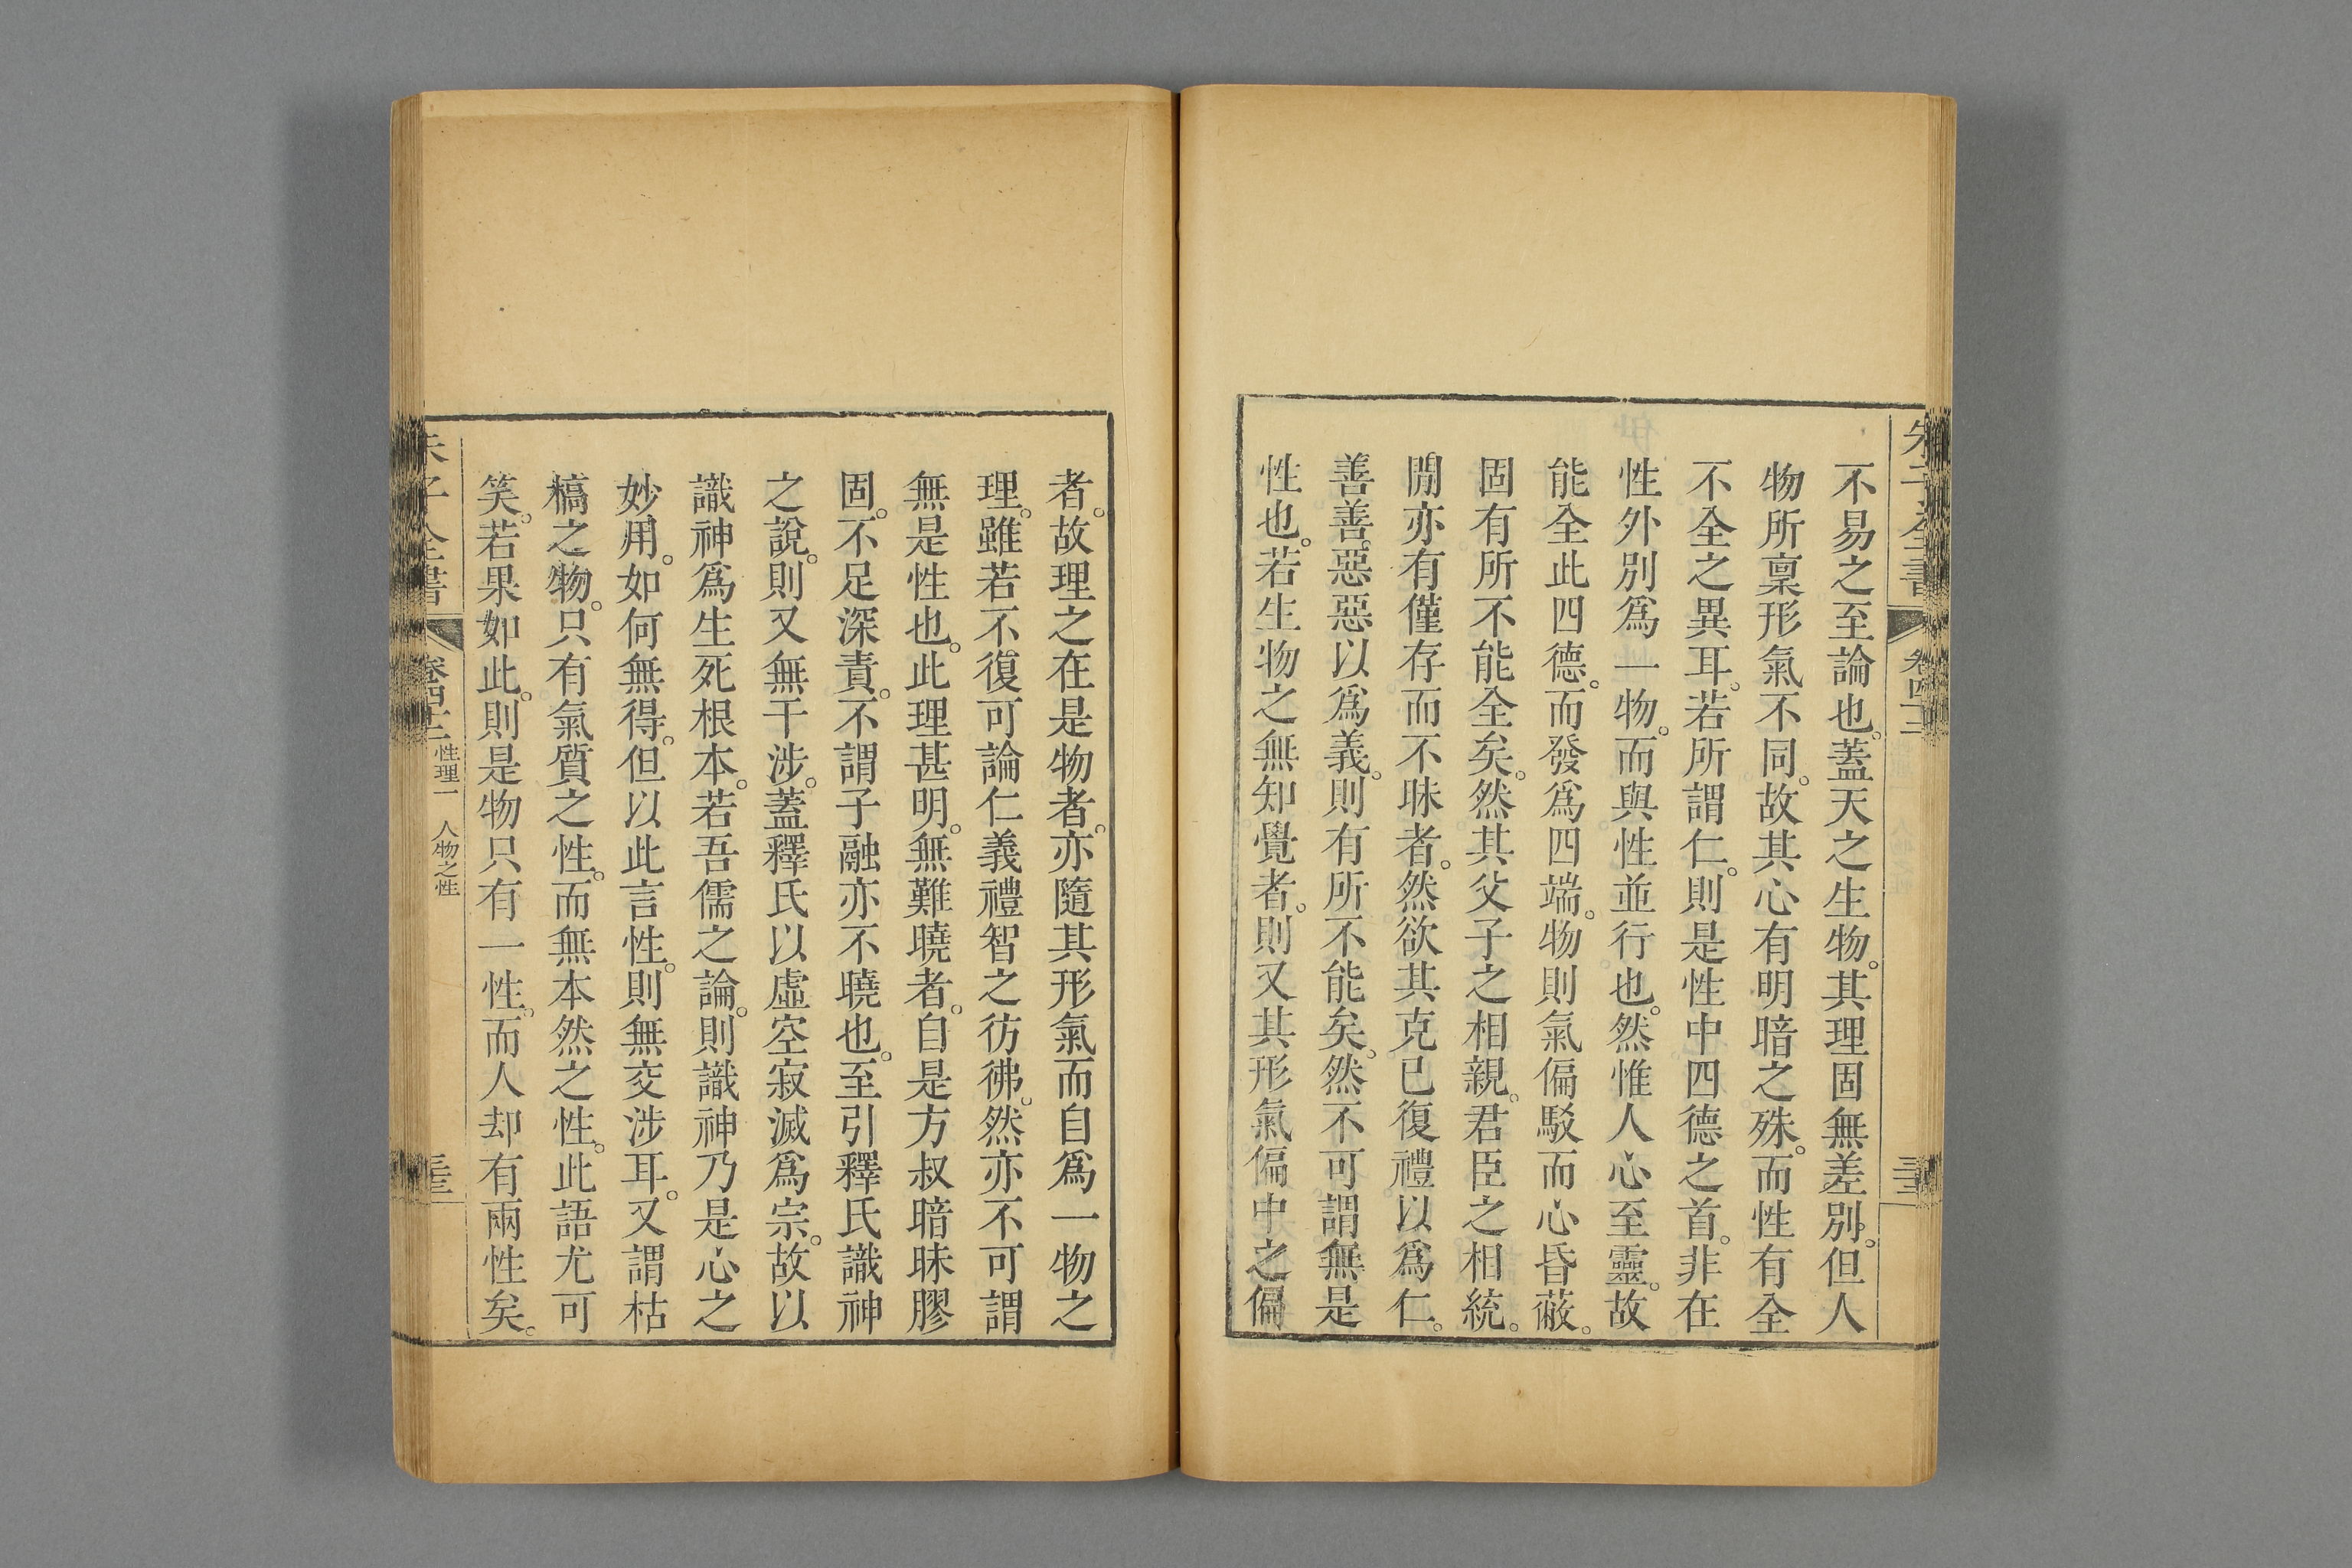 朱子全書
卷四十二
不易之至論也。蓋天之生物。其理固無差別。但人
物所稟形氣不同。故其心有明暗之殊。而性有全
不全之異耳。若所謂仁。則是性中四德之首。非在
性外別爲一物。而與性並行也。然惟人心至靈。故
能全此四德。而發爲四端。物則氣偏駁而心昏蔽。
固有所不能全矣。然其父子之相親。君臣之相統。
閒亦有僅存而不昧者。然欲其克已復禮以爲仁。
善善惡惡以爲義。則有所不能矣。然不可謂無是
性也。若生物之無知覺者。則又其形氣偏中之偏
者。故理之在是物者。亦隨其形氣而自爲一物之
理。雖若不復可論仁義禮智之彷彿。然亦不可謂
無是性也。此理甚明。無難曉者。自是方叔暗昧膠
固。不足深責。不謂子融亦不曉也。至引釋氏識神
之說。則又無干涉。蓋釋氏以虛空寂滅爲宗。故以
識神爲生死根本。若吾儒之論。則識神乃是心之
妙用。如何無得。但以此言性。則無交涉耳。又謂枯
槁之物。只有氣質之性。而無本然之性。此語尤可
笑。若果如此。則是物只有一性。而人却有兩性矣。
朱子全書
卷四十二
性理一 人物之性